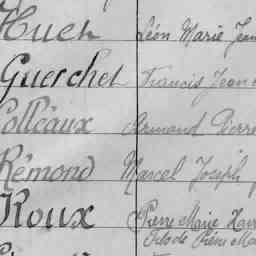 Huet Léon Marie Jean
Guerchet Francis Jean
Colléaux Armand Pierre
Rémond Marcel Joseph
Roux Pierre Marie Xavi
Marie